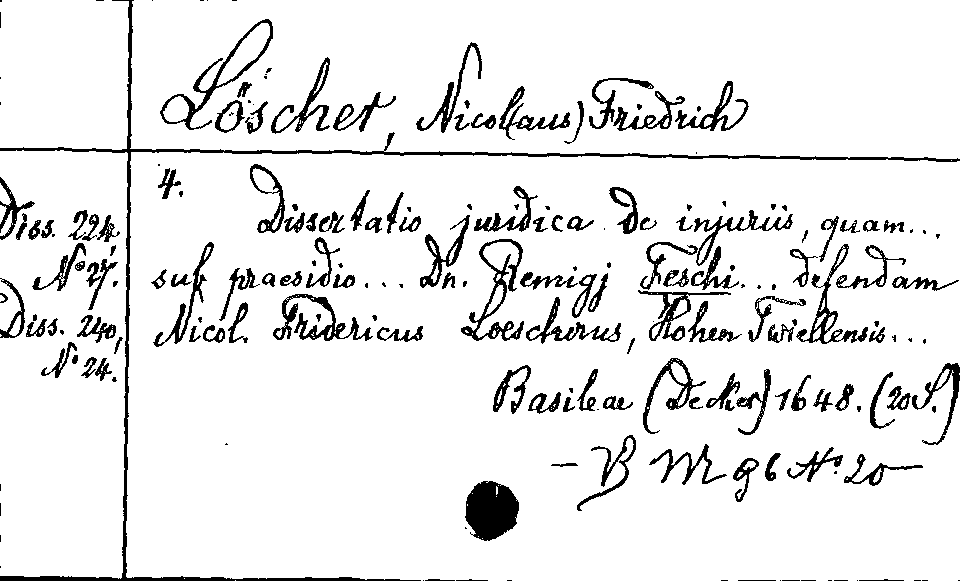 Löscher, Nicol(aus) Friedrich
4.
Dissertatio juridica de injuriis, quam...
Diss. 224,
No 27.
sub praesidio... Dn. Remigj Feschi... defendam
Diss. 240,
No 24.
Nicol. Fridericus Loescherus, Hohen Twiellensis...
Basileae (Decker) 1648. (20 S.)
— B M g 6 No 20 —